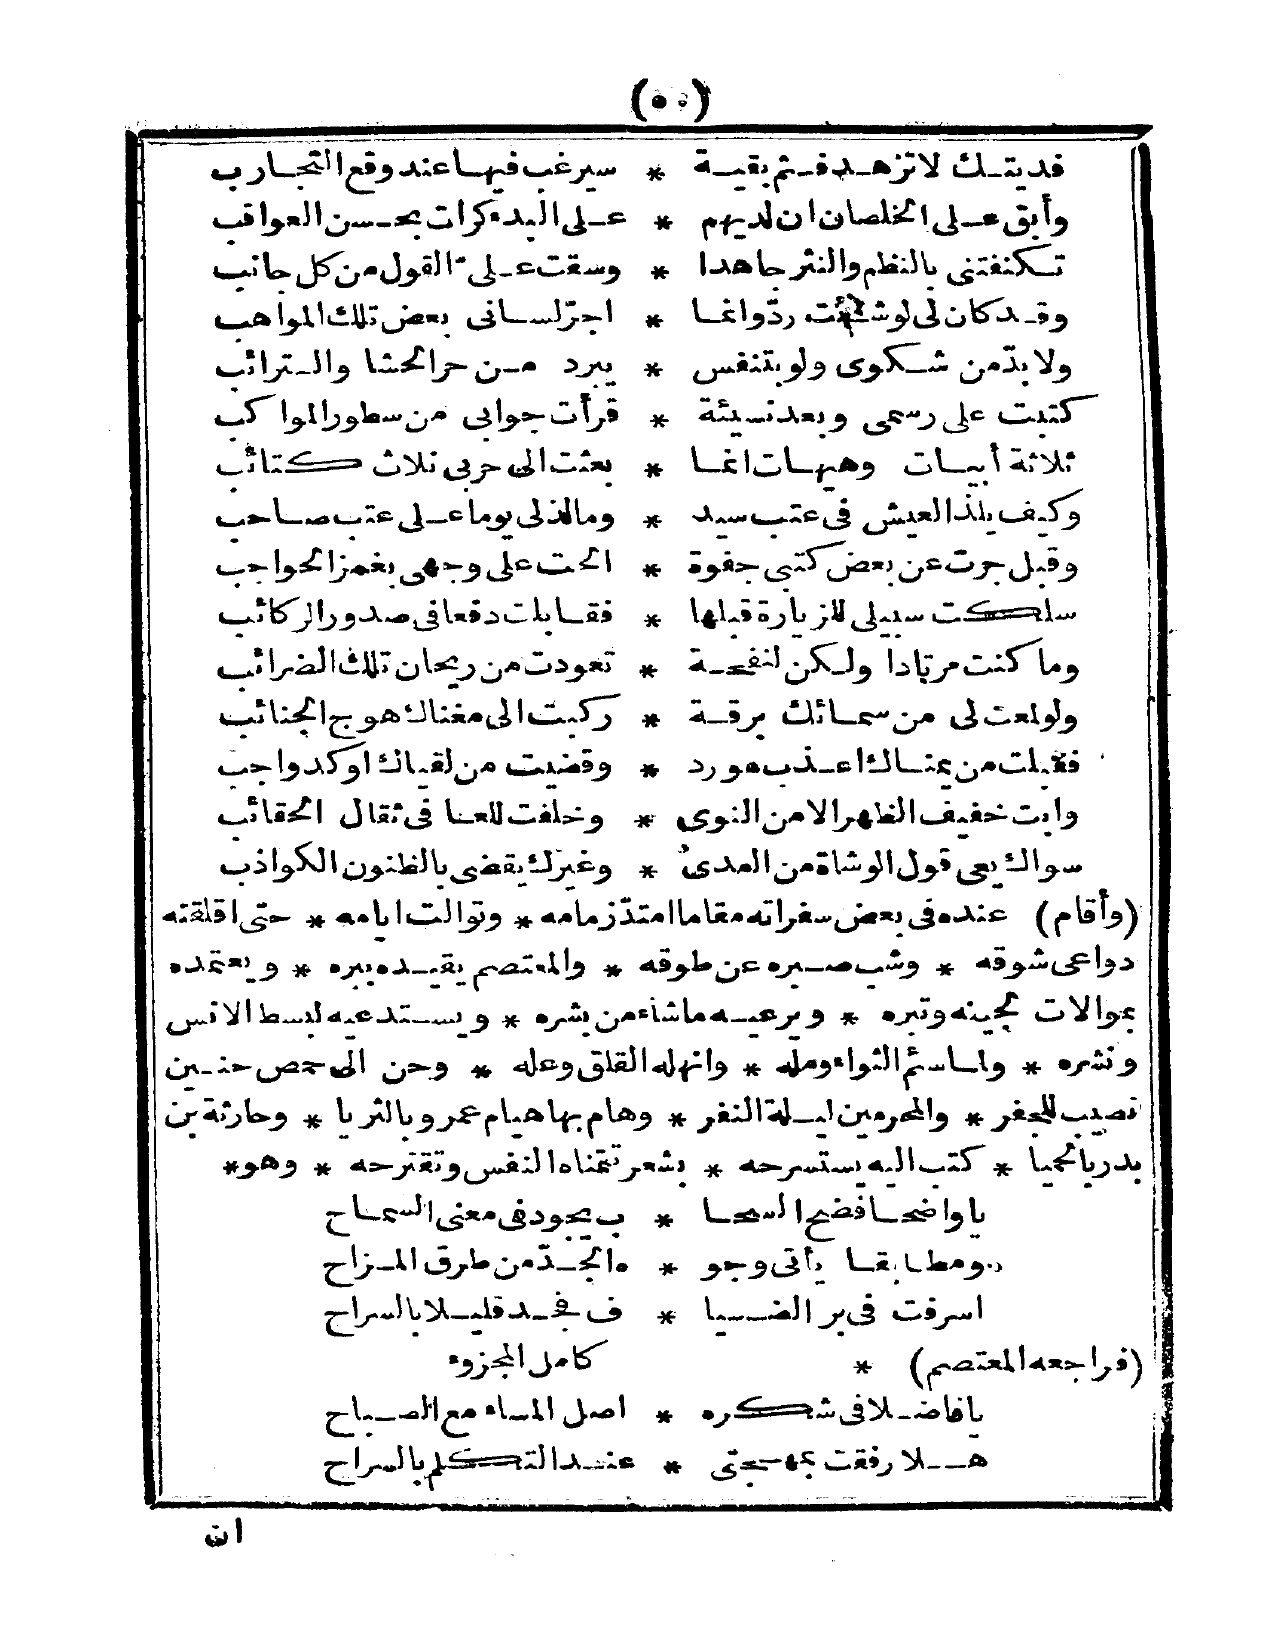 (٥٠)
فديتك لا تزهد فثم بقية * سيرغب فيها عند وقع التجارب
وأبق على الخلصان ان لديهم * على البدء كرات بحسن العواقب
تكنفتنى بالنظم والنثر جاهدا * وسقت على القول من كل جانب
وقد كان لى لو شئت ردّ وانما * اجرّ لسانى بعض تلك المواهب
ولا بدّ من شكوى ولو بتنفس * يبرد من حر الحشا والترائب
كتبت على رسمى وبعد نسيئة * قرأت جوابى من سطور المواكب
ثلاثة أبيات وهيهات انما * بعثت الى حربى ثلاث كتائب
وكيف يلذ العيش فى عتب سيد * وما لذ لى يوما على عتب صاحب
وقبل جرت عن بعض كتبى جفوة * الحت على وجهى بغمز الحواجب
سلكت سبيلى للزيارة قبلها * فقابلت دفعا فى صدور الركائب
وما كنت مرتادا ولكن لنفحة * تعودت من ريحان تلك الضرائب
ولو لمعت لى من سمائك برقة * ركبت الى مغناك هوج الجنائب
فقبلت من يمناك اعذب مورد * وقضيت من لقياك اوكد واجب
وابت خفيف الظهر الا من النوى * وخلفت للعنا فى ثقال الحقائب
سواك يعى قول الوشاة من العدى * وغيرك يقضى بالظنون الكواذب
(وأقام) عنده فى بعض سفراته مقاما امتدّ زمامه * وتوالت ايامه * حتى اقلقته
دواعى شوقه * وشب صبره عن طوقه * والمعتصم يقيده ببره * ويعتمده
بموالات لجينه وتبره * ويرعيه ما شاء من بشره * ويستدعيه لبسط الانس
ونشره * ولما سئم الثواء ومله * وانهله القلق وعله * وحن الى حمص حنين
نصيب للجفر * والمحرمين ليلة النفر * وهام بها هيام عمرو بالثريا * وحارثة بن
بدر بالحيا * كتب اليه يستسرحه * بشعر تتمناه النفس وتقترحه * وهو *
يا واضحا فضح السحا * ب بجود فى معنى السماح
ومطابقا يأتى وجو * ه الجدّ من طرق المزاح
اسرفت فى بر الضيا * ف فجد قليلا بالسراح
(فراجعه المعتصم) * كامل المجزوء
يا فاضلا فى شكره * اصل المساء مع الصباح
هلا رفقت بمهجتى * عند التكلم بالسراح
ان